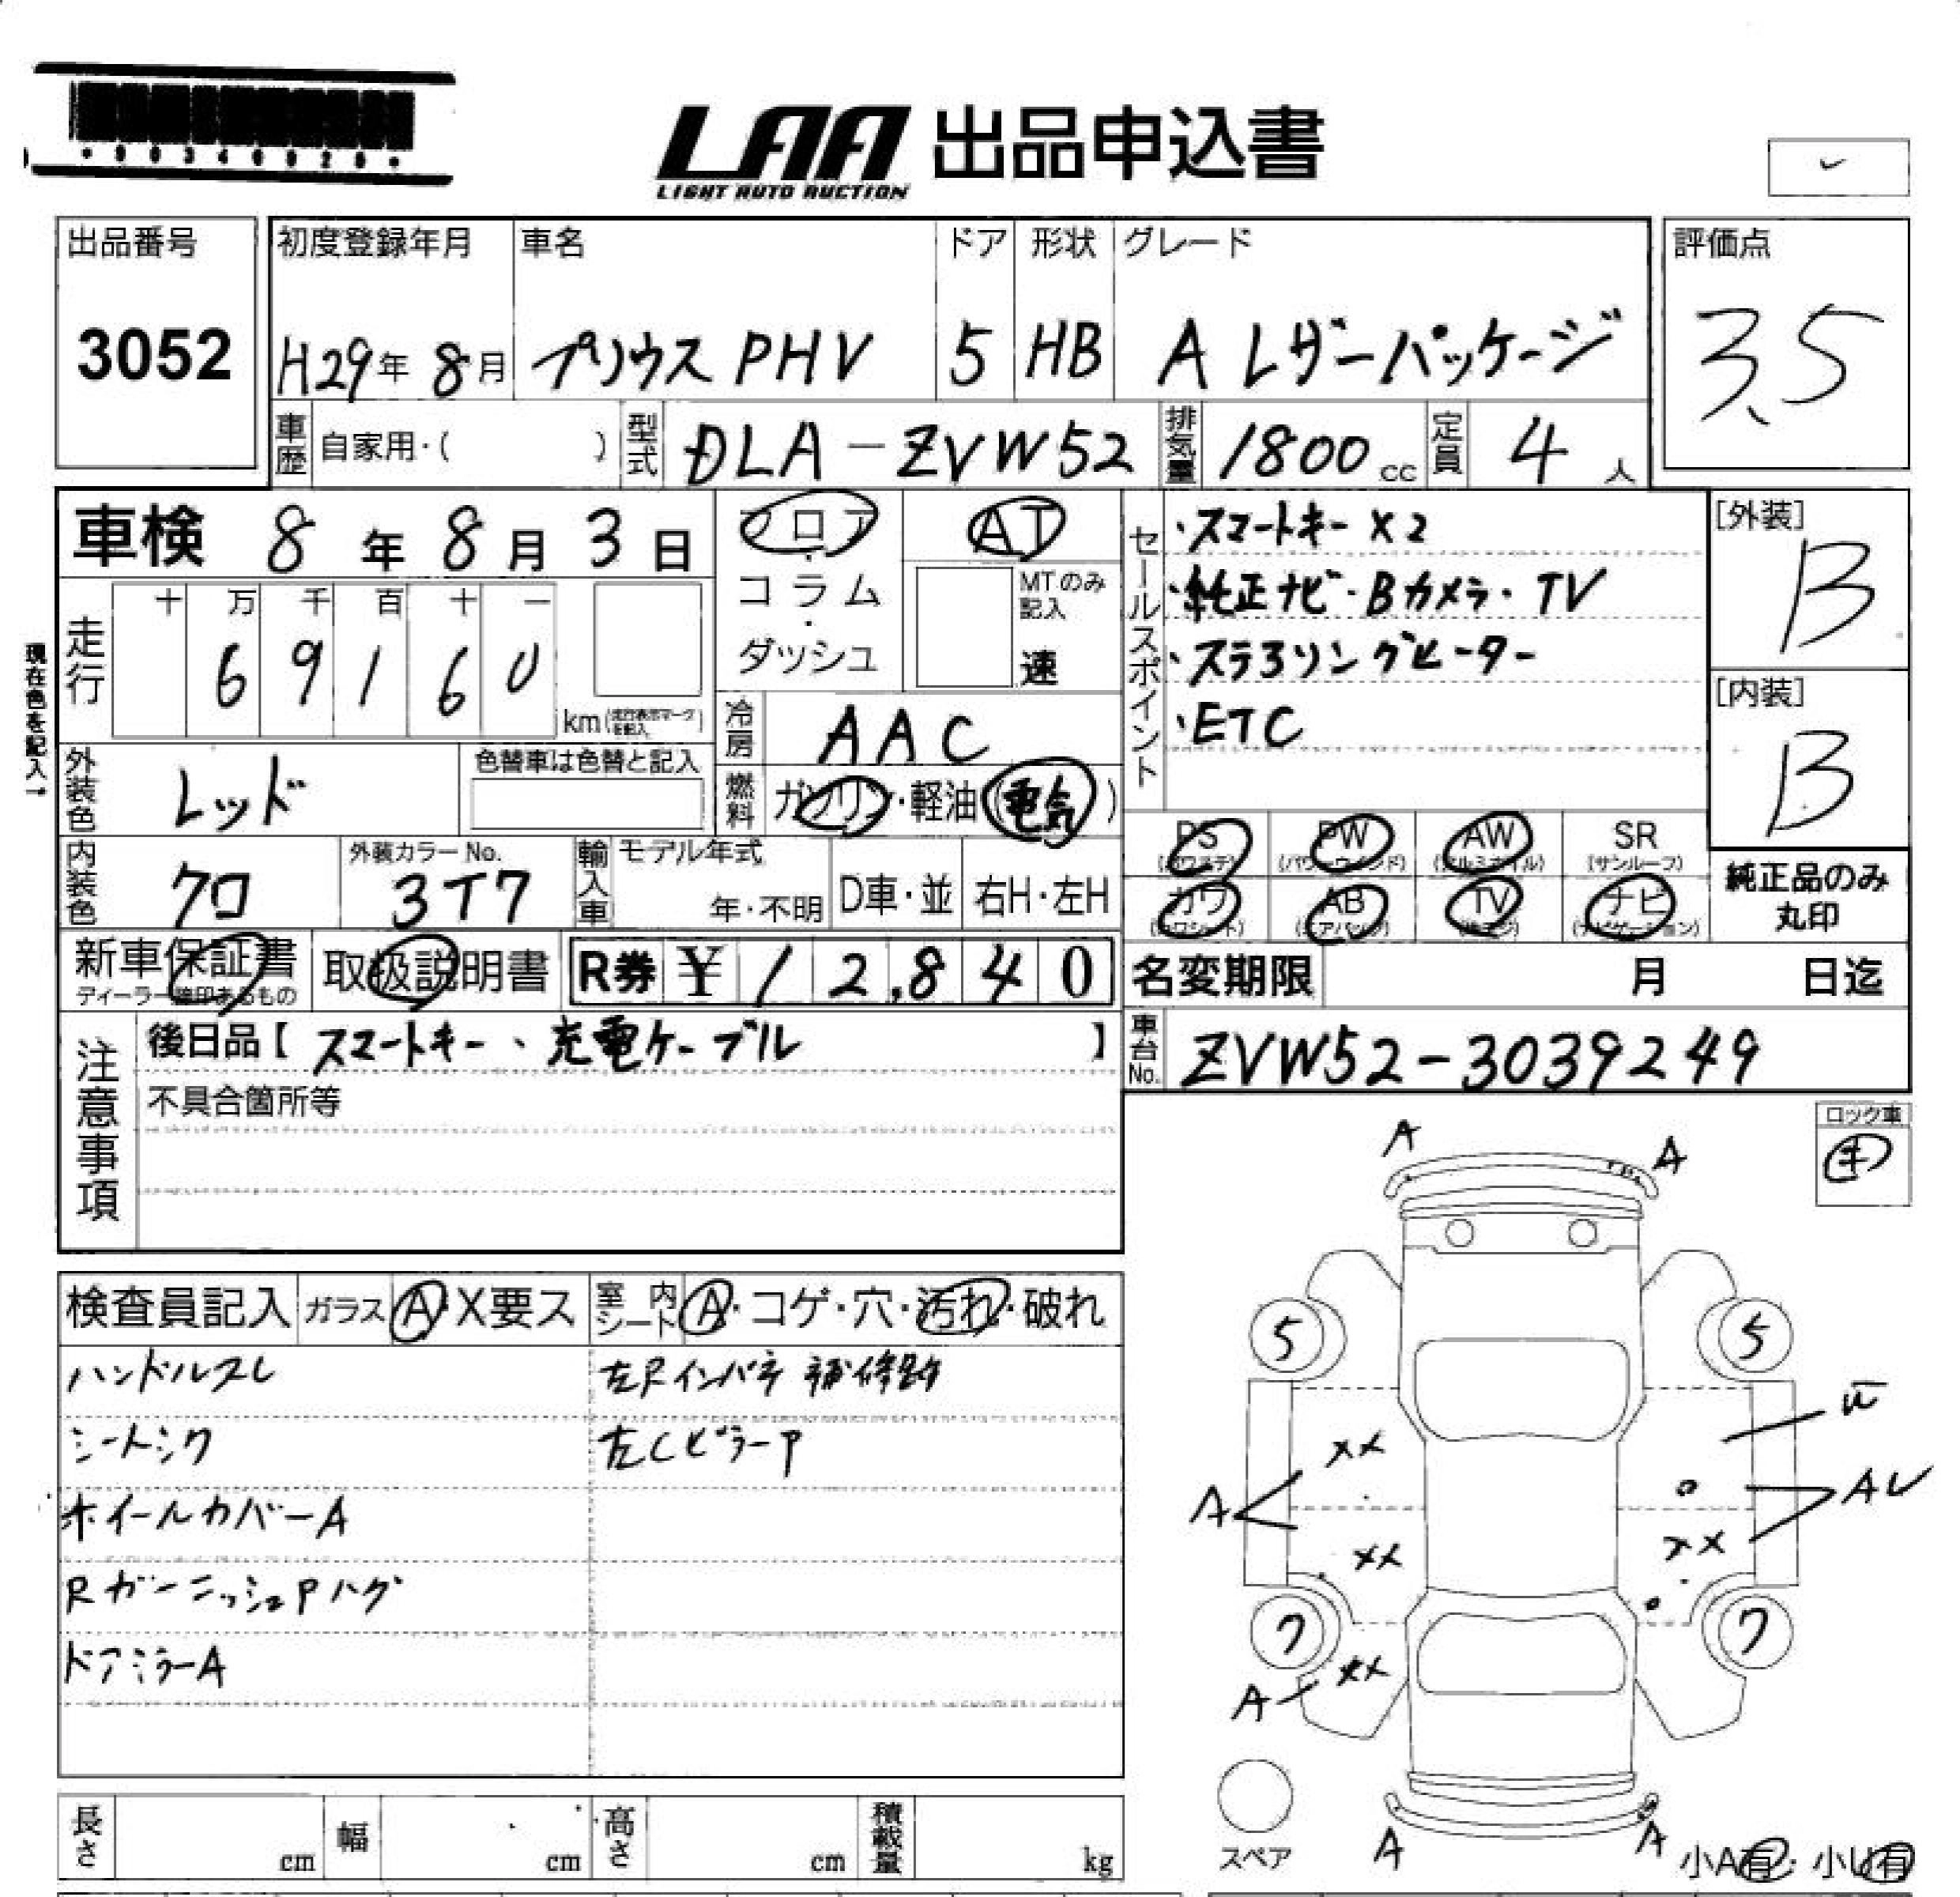 LAA 出品申込書
LIGHT AUTO AUCTION
出品番号
3052
初度登録年月
H29年 8月
車名
プリウス PHV
ドア
5
形状
HB
グレード
A レザーパッケージ
評価点
3.5
車歴 自家用・( )
型式 DLA-ZVW52
排気量 1800 cc
定員 4 人
車検 8 年 8 月 3 日
フロア・コラム・ダッシュ
AT
MTのみ記入
速
セールスポイント
・スマートキー×2
・純正ナビ・Bカメラ・TV
・ステアリングヒーター
・ETC
[外装]
B
[内装]
B
現在色を記入→
走行 十 万 千 百 十 一
6 9 1 6 0
km
冷房 AAC
外装色 レッド
色替車は色替と記入
燃料 ガソリン・軽油(電気)
内装色 クロ
外装カラーNo.
3T7
輸入車 モデル年式
年・不明 D車・並 右H・左H
PS PW AW SR
(パワステ) (パワーウインド) (アルミホイル) (サンルーフ)
カワ AB TV ナビ
(カワシート) (エアバック) (ナビゲーション)
純正品のみ
丸印
新車保証書
ディーラー確印あるもの
取扱説明書
R券 ¥12,840
名変期限 月 日迄
注意事項
後日品【 スマートキー、充電ケーブル 】
不具合箇所等
車台No. ZVW52-3039249
ロック車
キ
検査員記入 ガラス A・X要ス
室内シート A・コゲ・穴・汚れ・破れ
ハンドルスレ
シートシワ
ホイールカバーA
RガーニッシュPハゲ
ドアミラーA
左Rインパネ補修跡
左CピラーP
A A
5 5
××
A
××
AU
××
××
A
7 7
A A
スペア
小A有・小U有
長さ cm
幅 cm
高さ cm
積載量 kg